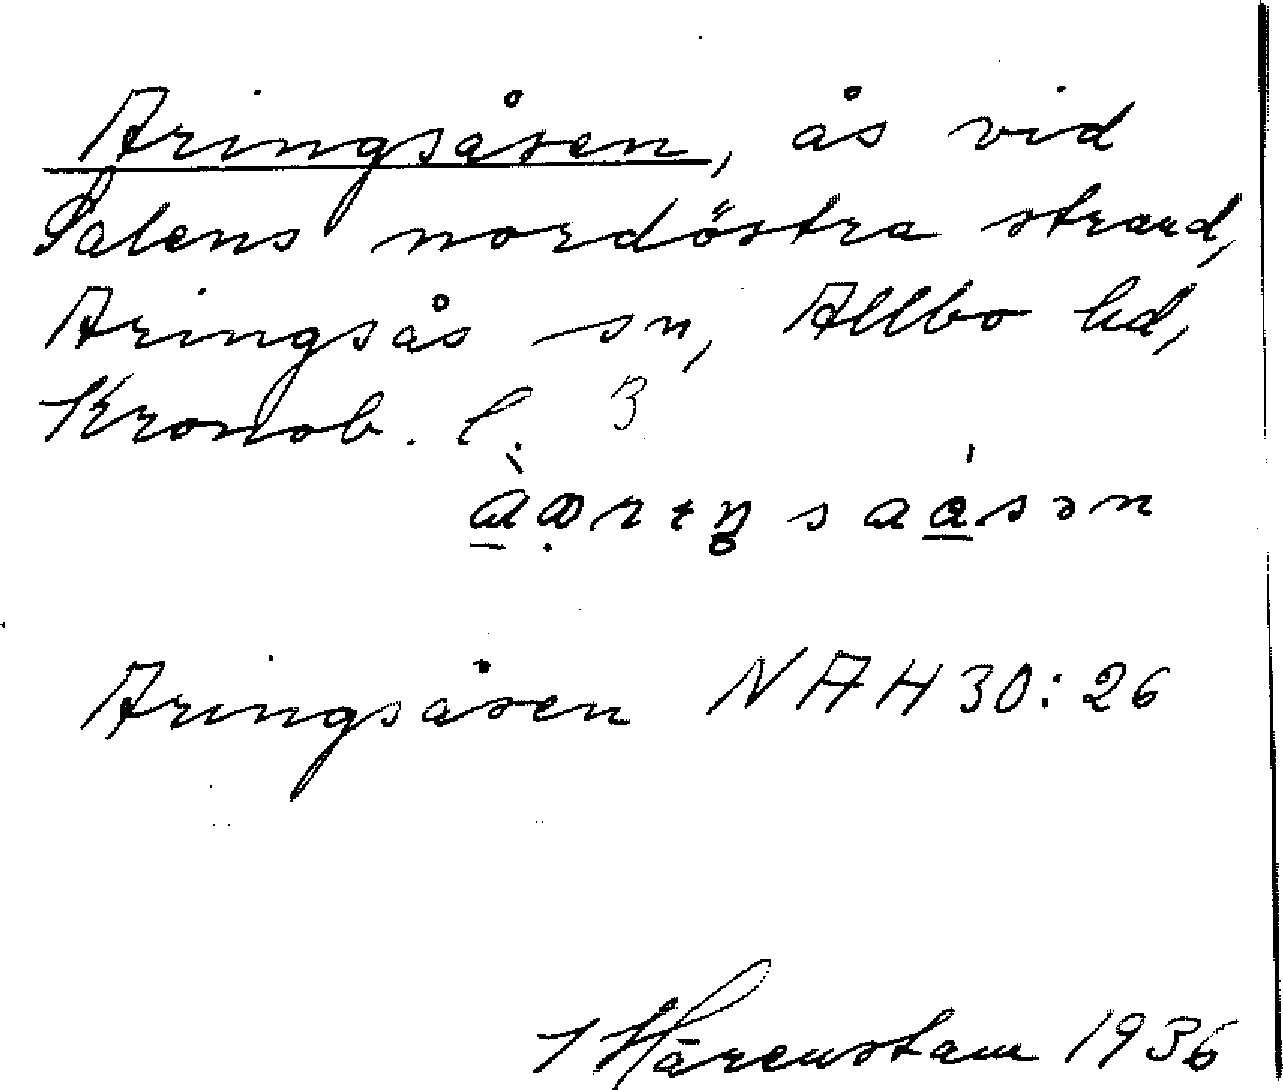 Aringsåsen, ås vid
Salens nordöstra strand,
Aringsås sn, Allbo hd,
Kronob. l. 3
Aringsåsen NAH 30:26
Härenstam 1936